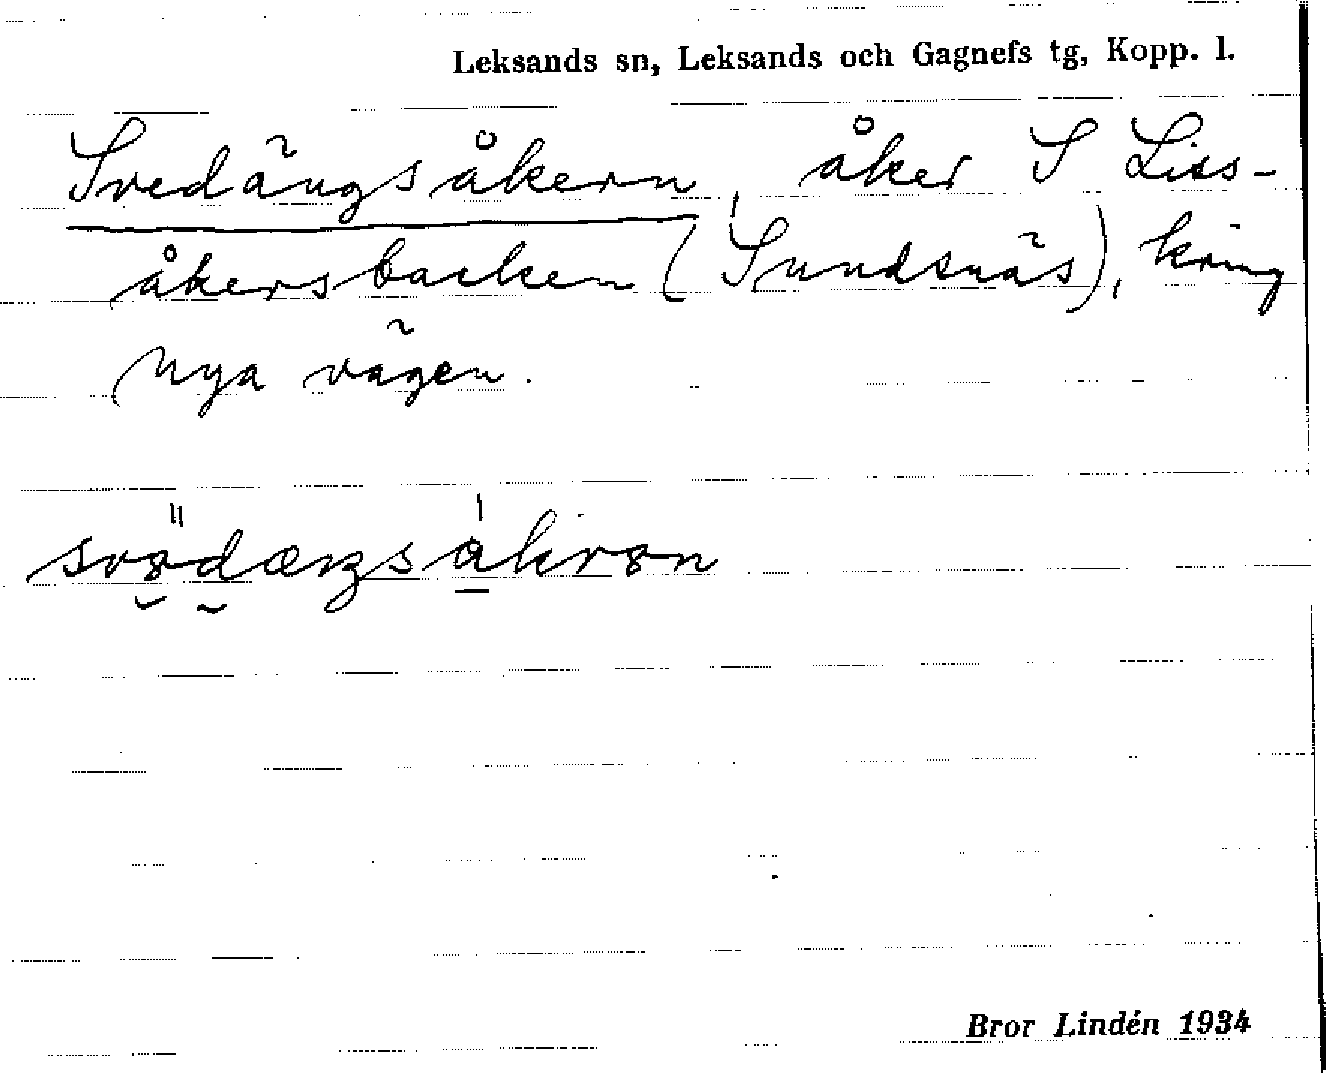 Leksands sn, Leksands och Gagnefs tg, Kopp. l.
Svedängsåkern, åker S Liss-
åkersbacken (Sundsnäs), kring
nya vägen.
Bror Lindén 1934